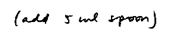 (add 5 ml spoon)